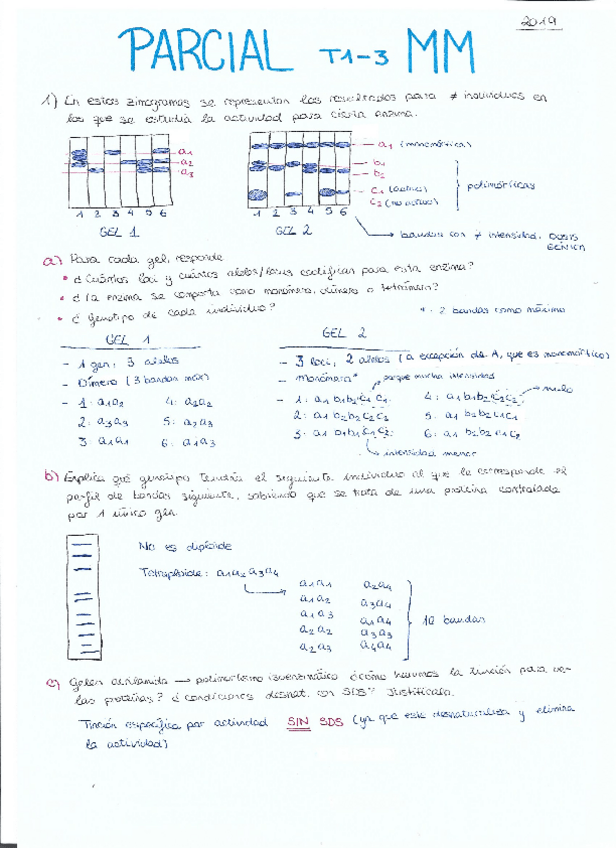 2019
PARCIAL T1-3 MM
1) En estos zimogramas se representan los resultados para ≠ individuos en
los que se estudia la actividad para cierta enzima.
a1
a2
a3
1 2 3 4 5 6
GEL 1
a1 (monomórfica)
b1
b2
c1 (activo)
c2 (no activo)
polimórficas
1 2 3 4 5 6
GEL 2
bandas con ≠ intensidad. DOSIS
GÉNICA
a) Para cada gel, responde
• ¿Cuántos loci y cuántos alelos/locus codifican para esta enzima?
• ¿La enzima se comporta como monómero, dímero o tetrámero?
• ¿Genotipo de cada individuo?
* : 2 bandas como máximo
GEL 1
- 1 gen; 3 alelos
- Dímero (3 bandas máx)
- 1: a1a2 4: a2a2
2: a3a3 5: a2a3
3: a1a1 6: a1a3
GEL 2
- 3 loci, 2 alelos (a excepción de A, que es monomórfico)
- Monómero* porque mucha intensidad
nulo
- 1: a1 b1b2 c1 c1. 4: a1 b1b2 c2c2.
2: a1 b2b2 c2c2 5: a1 b2b2 c1c1
3: a1 b1b1 c1c2 6: a1 b2b2 c1c2
intensidad menor
b) Explica qué genotipo tendría el siguiente individuo al que le corresponde el
perfil de bandas siguiente, sabiendo que se trata de una proteína controlada
por 1 único gen.
No es diploide
Tetraploide: a1a2a3a4
a1a1 a2a4
a1a2 a3a4
a1a3 a1a4
a2a2 a3a3
a2a3 a4a4
10 bandas
c) Geles acrilamida → polimorfismo isoenzimático ¿cómo haremos la tinción para ver
las proteínas? ¿condiciones desnat. con SDS? Justifícalo.
Tinción específica por actividad SIN SDS (ya que este desnaturaliza y elimina
la actividad)